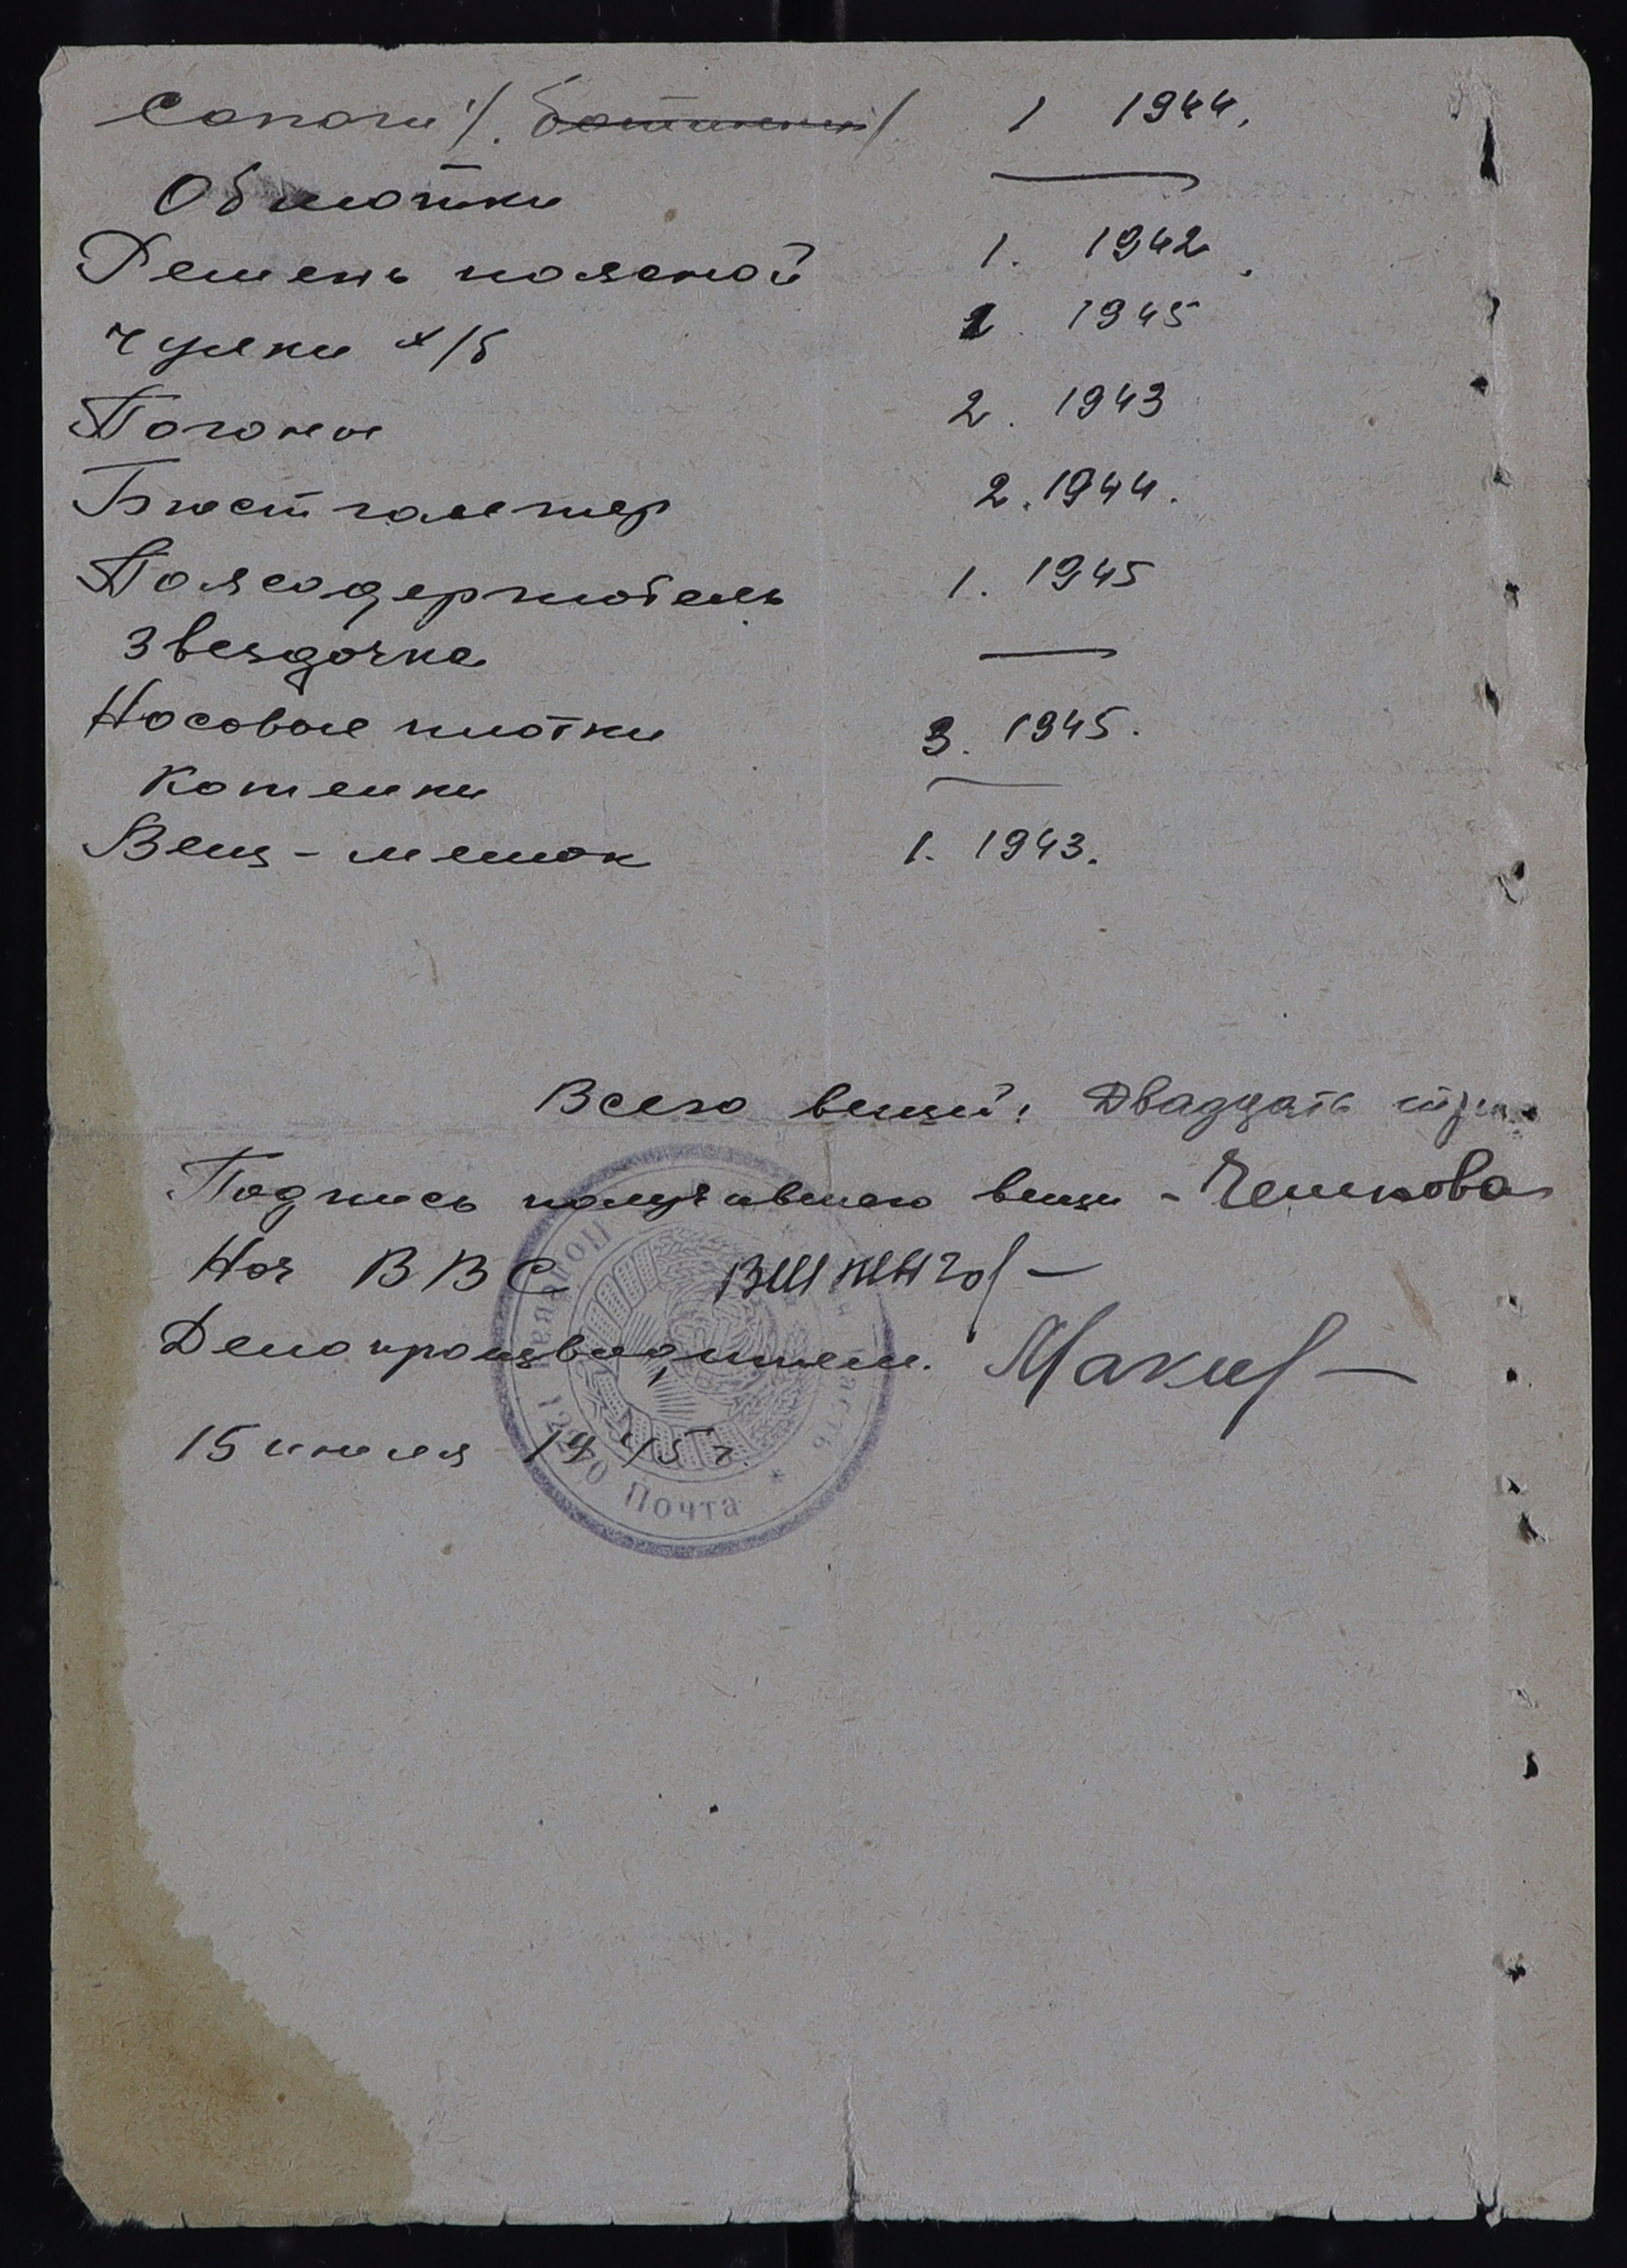 Сапоги /. ботинки/ 1 1944.
Обмотки —
Ремень поясной 1. 1942.
Чулки х/б 2. 1945
Погоны 2. 1943
Бюстгалтер 2. 1944.
Поясодержатель 1. 1945
Звездочка —
Носовые платки 3. 1945.
Котелки —
Вещ-мешок 1. 1943.
Всего вещей: Двадцать три
Подпись получившего вещи - Чешкова
Нач ВВС
Делопроизводитель.
15 июля 1945 г.
Полевая Почта
часть